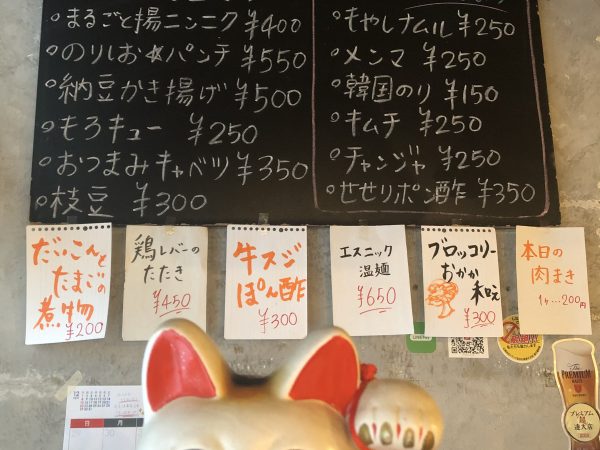 まるごと揚ニンニク ¥400
のりしお★パンチ ¥550
納豆かき揚げ ¥500
もろキュー ¥250
おつまみキャベツ ¥350
枝豆 ¥300
もやしナムル ¥250
メンマ ¥250
韓国のり ¥150
キムチ ¥250
チャンジャ ¥250
せせりポン酢 ¥350
だいこんと
たまごの
煮物
¥200
鶏レバーの
たたき
¥450
牛スジ
ぽん酢
¥300
エスニック
温麺
¥650
ブロッコリー
おかか
和え
¥300
本日の
肉まき
1ヶ…200円
LINE Pay
PREMIUM
プレミアム
超
達人店
日 月
29 30